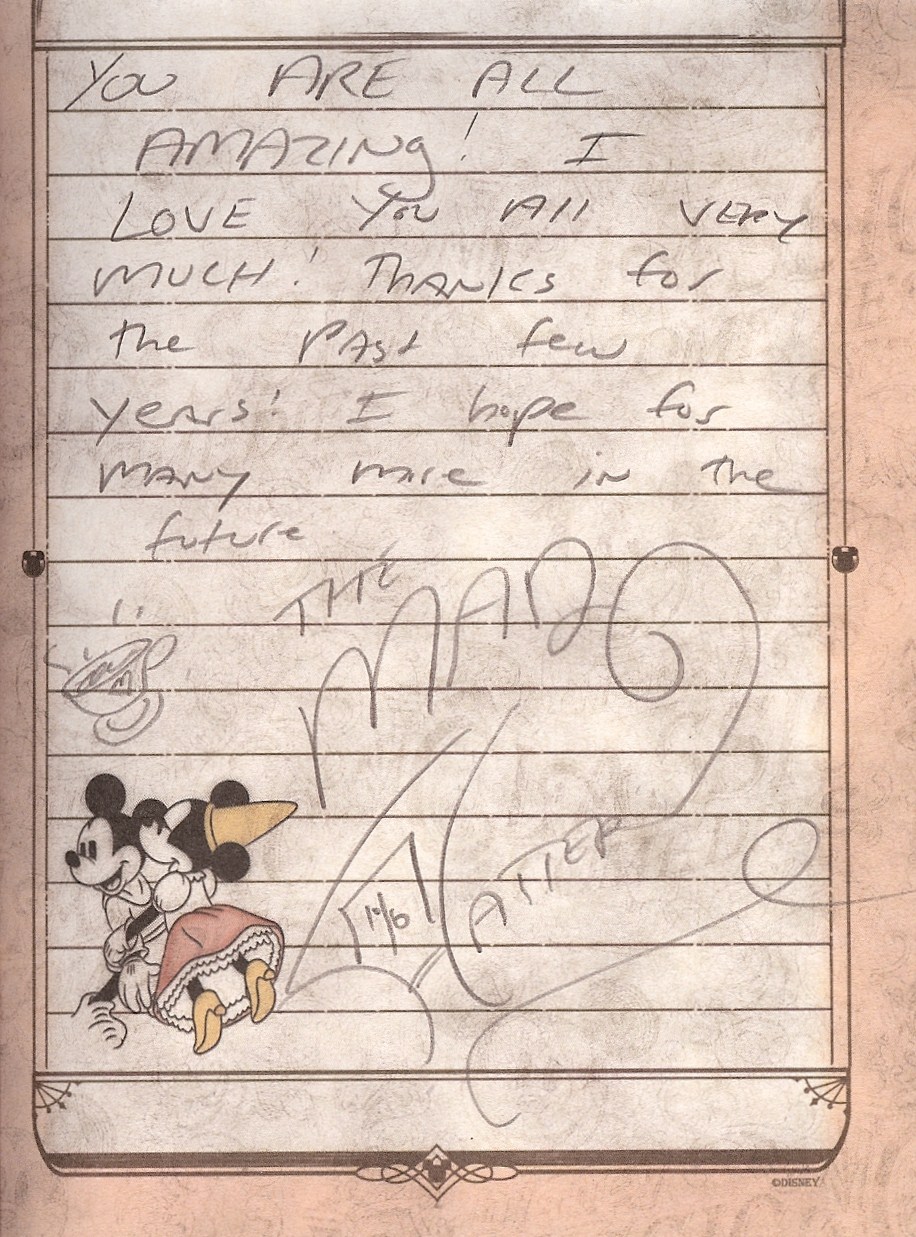 YOU ARE ALL
AMAZING! I
LOVE YOU All VERY
MUCH! THANKS for
the PAst few
years! I hope for
MANY more iN the
future
THE
MAD
HATTER
10/6
©DISNEY